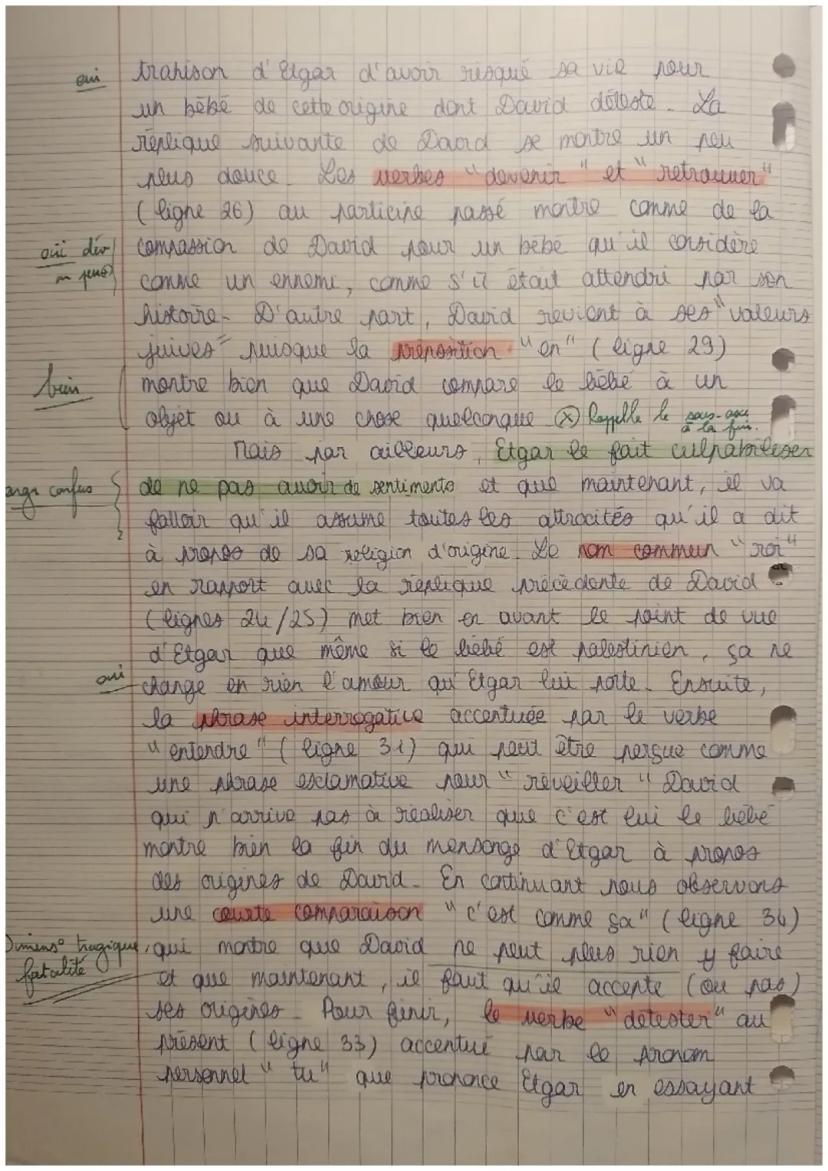 oui
trahison d'Etgar d'avoir risqué sa vie pour
un bébé de cette origine dont David déteste. La
réplique suivante de David se montre un peu
plus douce. Les verbes "devenir" et "retrouver"
(ligne 26) au participe passé montre comme de la
oui dév
un peu
compassion de David pour un bébé qu'il considère
comme un ennemi, comme s'il était attendri par son
histoire. D'autre part, David revient à ses "valeurs
juives" puisque la préposition "en" (ligne 29)
bien
montre bien que David compare le bébé à un
objet ou à une chose quelconque ⊗ Rappelle le sous-axe
à la fin.
Mais par ailleurs, Etgar le fait culpabiliser
confus
de ne pas avoir de sentiments et que maintenant, il va
falloir qu'il assume toutes les attrocités qu'il a dit
à propos de sa religion d'origine. Le nom commun "roi"
en rapport avec la réplique précédente de David
(lignes 24/25) met bien en avant le point de vue
d'Etgar que même si le bébé est palestinien, ça ne
oui
change en rien l'amour qu'Etgar lui porte. Ensuite,
la phrase interrogative accentuée par le verbe
"entendre" (ligne 31) qui peut être perçue comme
une phrase esclamative pour "réveiller" David
qui n'arrive pas à réaliser que c'est lui le bébé
montre bien la fin du mensonge d'Etgar à propos
des origines de David. En continuant nous observons
une courte comparaison "c'est comme ça" (ligne 34)
Dimens° tragique
fatalité
qui montre que David ne peut plus rien y faire
et que maintenant, il faut qu'il accepte (ou pas)
ses origines. Pour finir, le verbe "détester" au
présent (ligne 33) accentué par le pronom
personnel "tu" que prononce Etgar en essayant